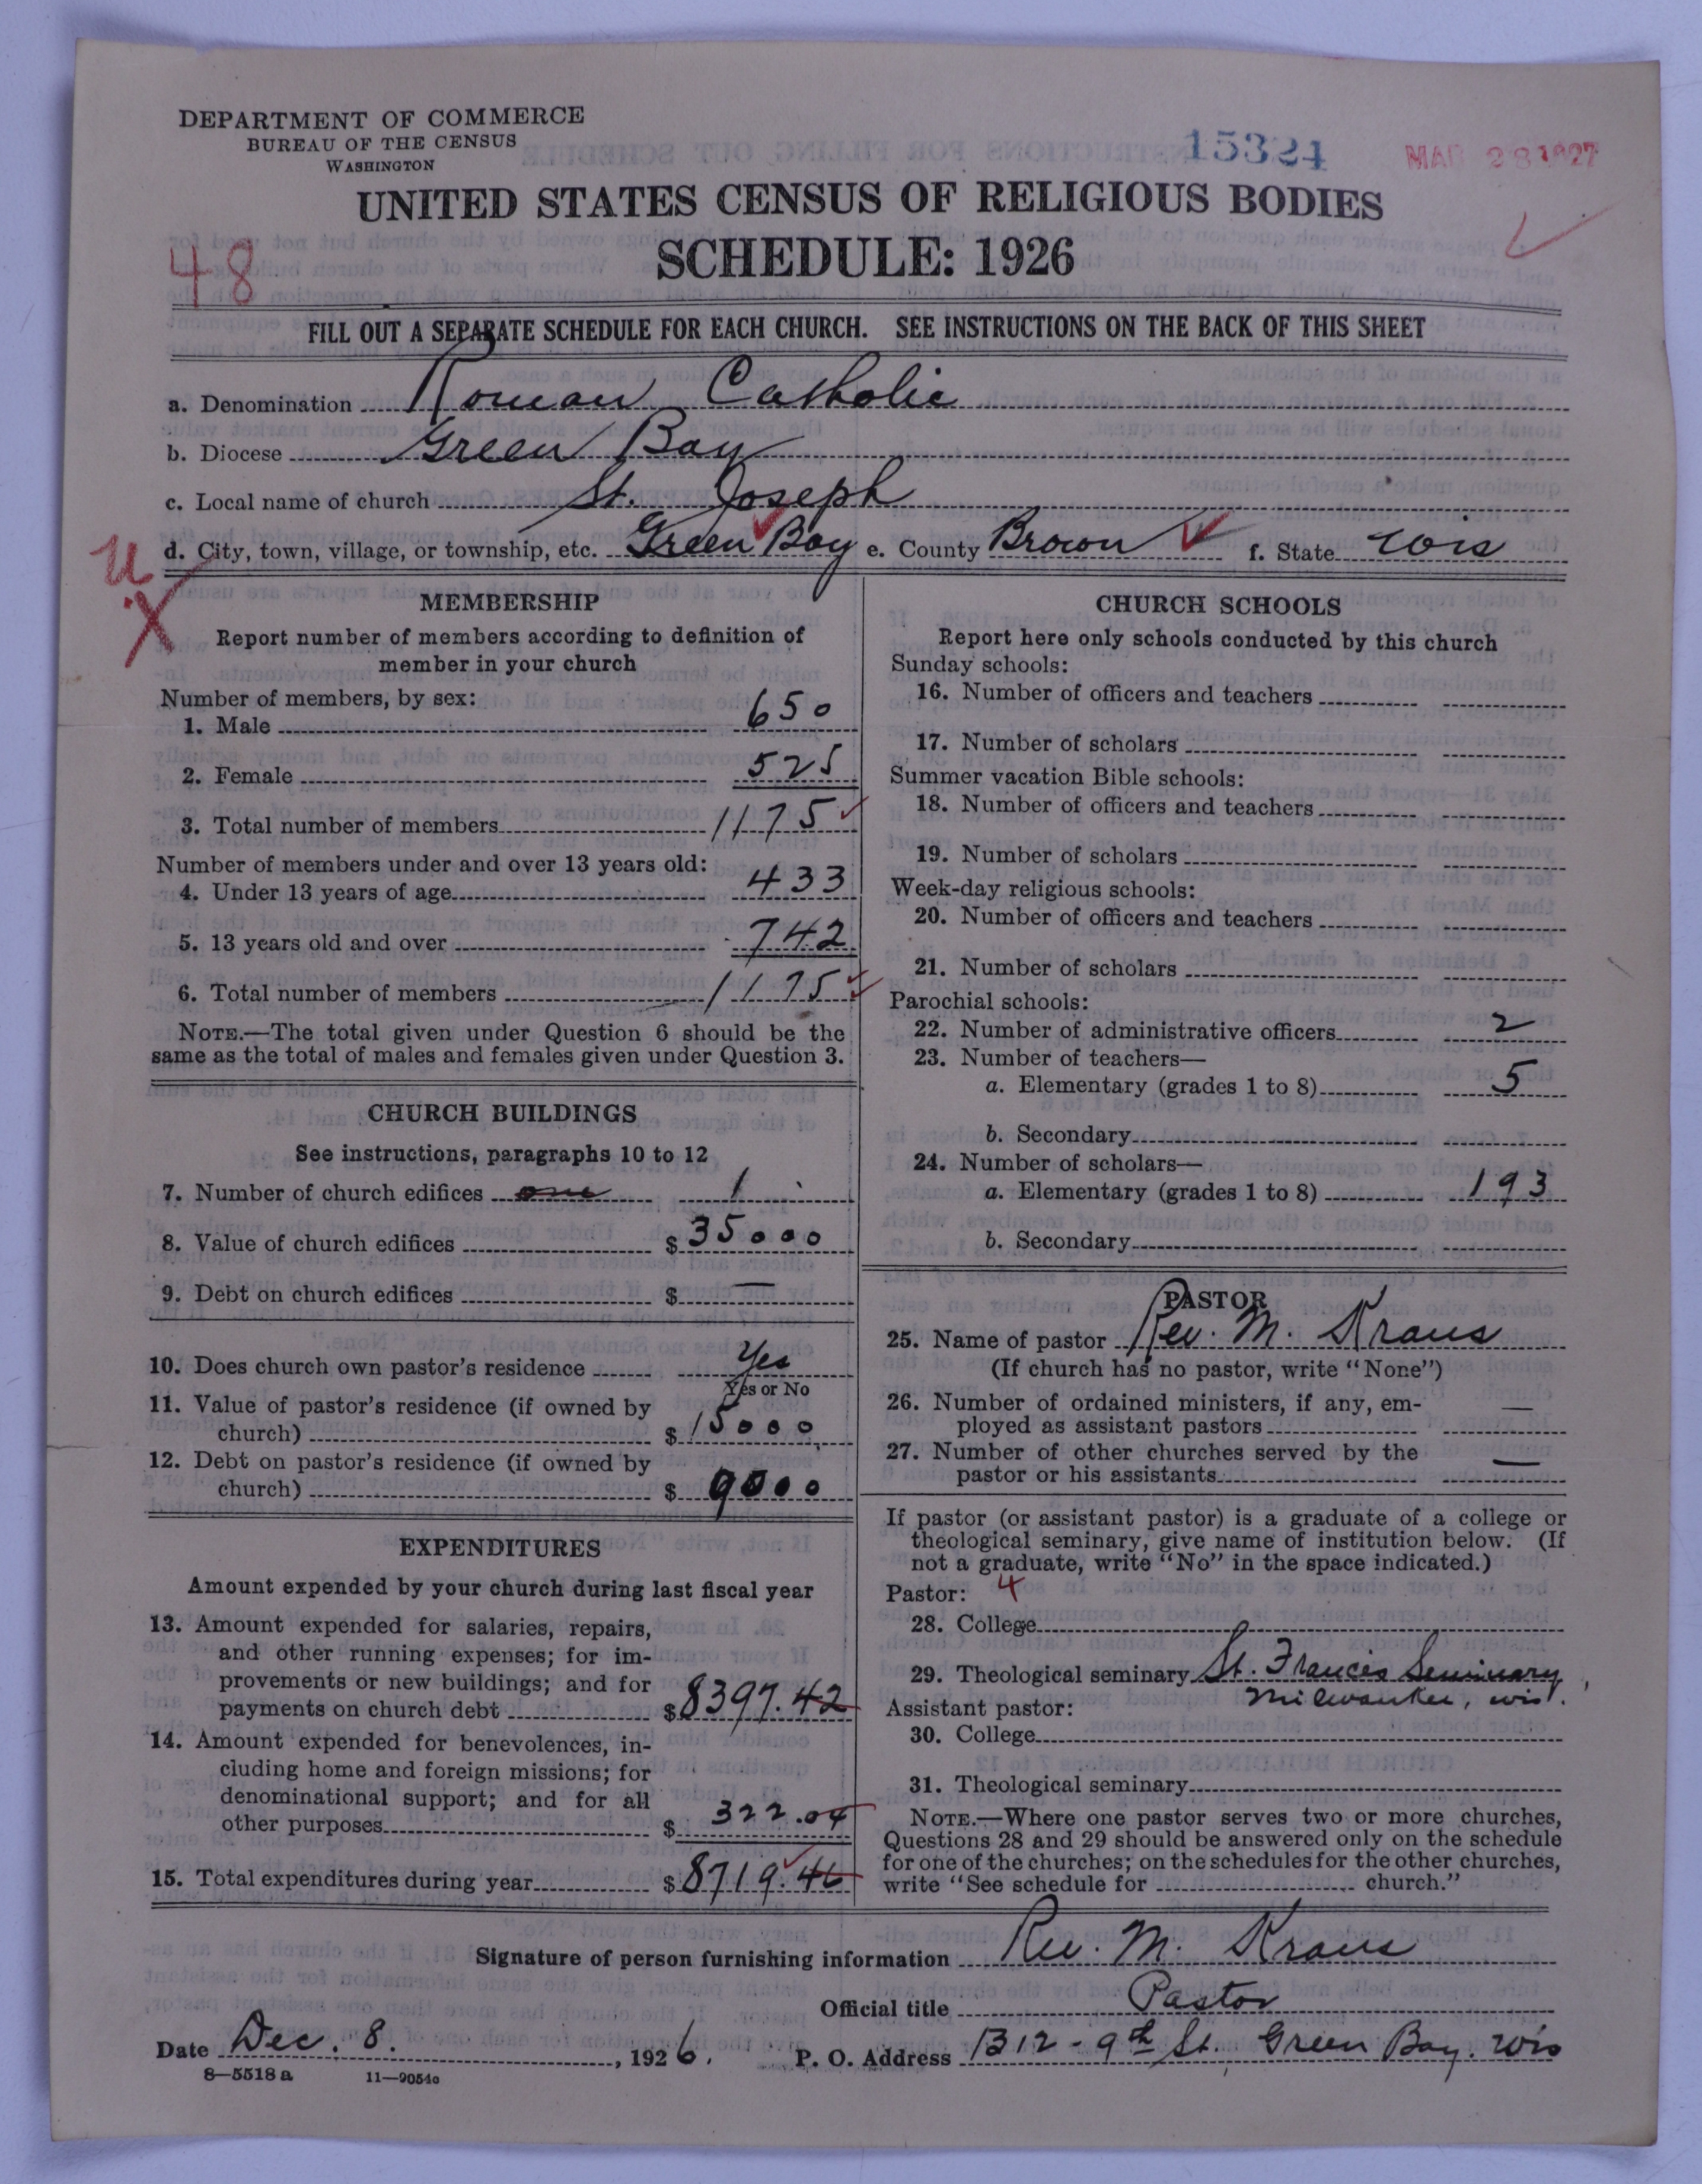 DEPARTMENT OF COMMERCE
BUREAU OF THE CENSUS
WASHINGTON
15324
MAR 28 1927
UNITED STATES CENSUS OF RELIGIOUS BODIES
SCHEDULE: 1926
48
FILL OUT A SEPARATE SCHEDULE FOR EACH CHURCH. SEE INSTRUCTIONS ON THE BACK OF THIS SHEET
a. Denomination Roman Catholic
b. Diocese Green Bay
c. Local name of church St. Joseph
d. City, town, village, or township, etc. Green Bay e. County Brown f. State Wis
u
X
MEMBERSHIP
Report number of members according to definition of
member in your church
Number of members, by sex:
1. Male 650
2. Female 525
3. Total number of members 1175
Number of members under and over 13 years old:
4. Under 13 years of age 433
5. 13 years old and over 742
6. Total number of members 1175
NOTE.—The total given under Question 6 should be the
same as the total of males and females given under Question 3.
CHURCH BUILDINGS
See instructions, paragraphs 10 to 12
7. Number of church edifices one 1
8. Value of church edifices $ 35000
9. Debt on church edifices $ —
10. Does church own pastor's residence Yes
Yes or No
11. Value of pastor's residence (if owned by
church) $ 15000
12. Debt on pastor's residence (if owned by
church) $ 9000
EXPENDITURES
Amount expended by your church during last fiscal year
13. Amount expended for salaries, repairs,
and other running expenses; for im-
provements or new buildings; and for
payments on church debt $ 8397.42
14. Amount expended for benevolences, in-
cluding home and foreign missions; for
denominational support; and for all
other purposes $ 322.04
15. Total expenditures during year $ 8719.46
CHURCH SCHOOLS
Report here only schools conducted by this church
Sunday schools:
16. Number of officers and teachers
17. Number of scholars
Summer vacation Bible schools:
18. Number of officers and teachers
19. Number of scholars
Week-day religious schools:
20. Number of officers and teachers
21. Number of scholars
Parochial schools:
22. Number of administrative officers 2
23. Number of teachers—
a. Elementary (grades 1 to 8) 5
b. Secondary
24. Number of scholars—
a. Elementary (grades 1 to 8) 193
b. Secondary
PASTOR
25. Name of pastor Rev. M. Kraus
(If church has no pastor, write "None")
26. Number of ordained ministers, if any, em-
ployed as assistant pastors —
27. Number of other churches served by the
pastor or his assistants —
If pastor (or assistant pastor) is a graduate of a college or
theological seminary, give name of institution below. (If
not a graduate, write "No" in the space indicated.)
Pastor: 4
28. College
29. Theological seminary St. Francis Seminary
Milwaukee, Wis.
Assistant pastor:
30. College
31. Theological seminary
NOTE.—Where one pastor serves two or more churches,
Questions 28 and 29 should be answered only on the schedule
for one of the churches; on the schedules for the other churches,
write "See schedule for church."
Signature of person furnishing information Rev. M. Kraus
Official title Pastor
Date Dec. 8. , 1926. P. O. Address 1312 - 9th St. Green Bay. Wis
8—5518 a 11—9054o